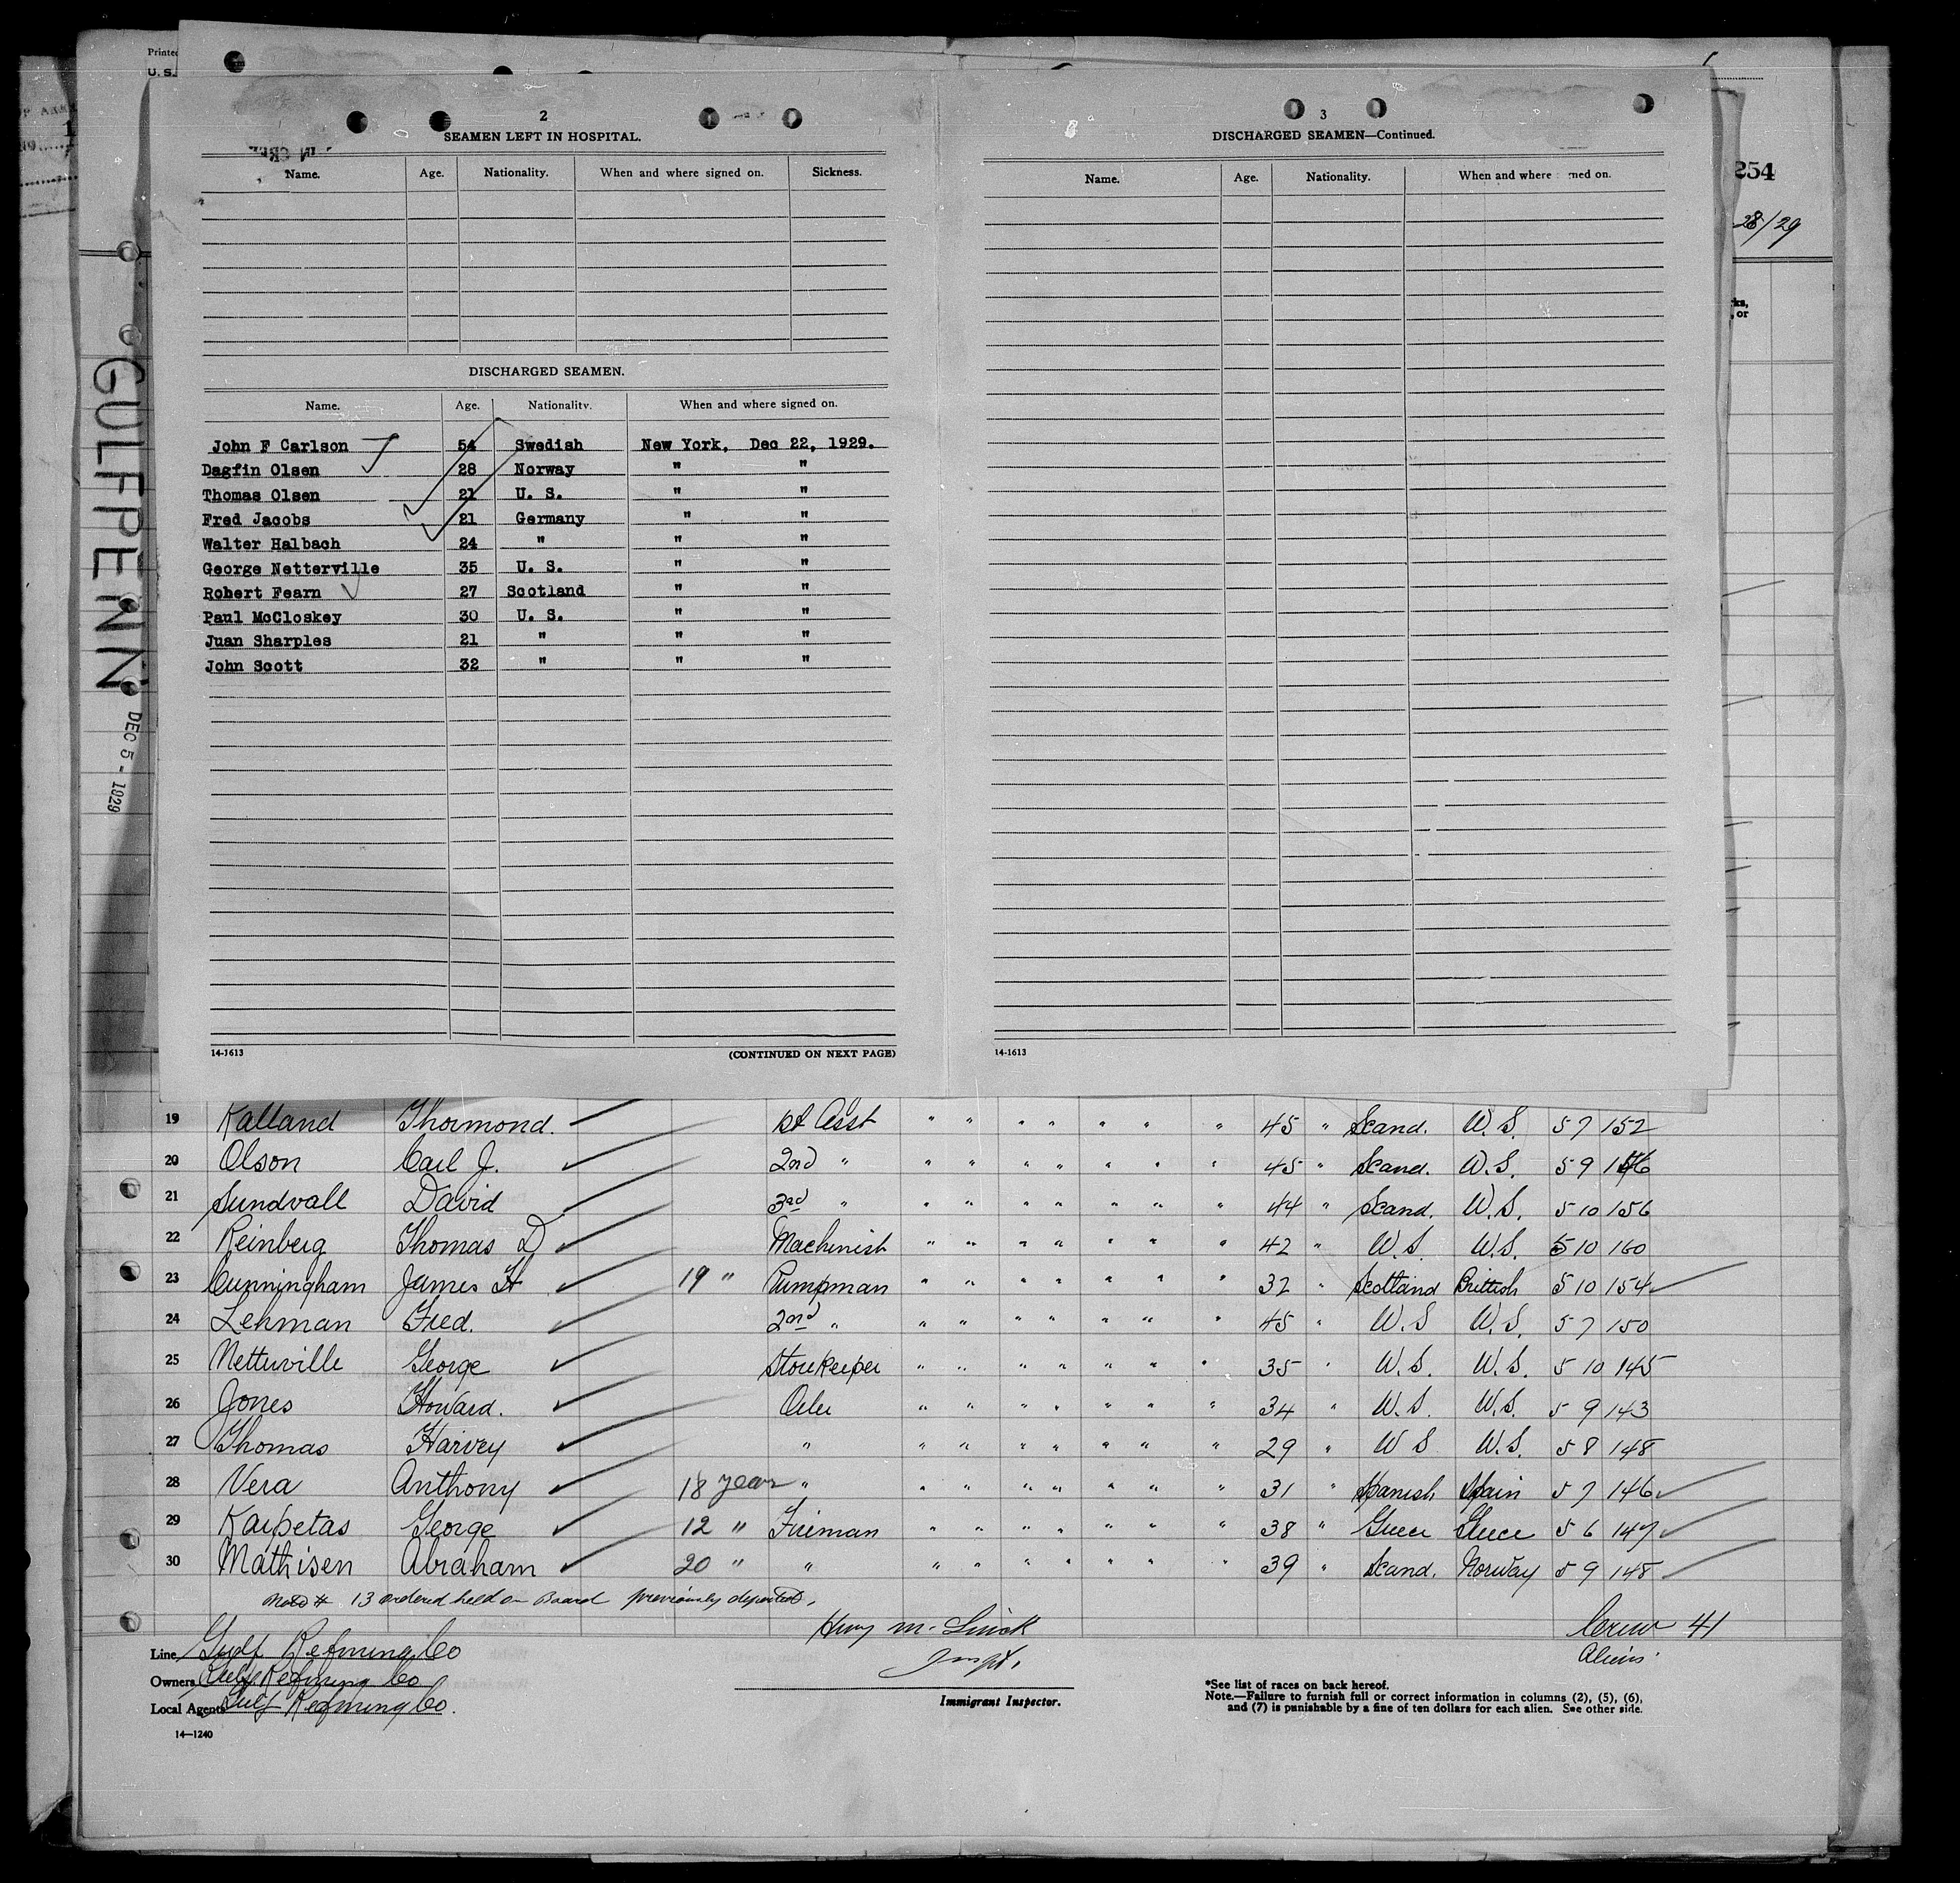 Printed
U. S.
2
SEAMEN LEFT IN HOSPITAL.
Name. Age. Nationality. When and where signed on. Sickness.
DISCHARGED SEAMEN.
Name. Age. Nationality. When and where signed on.
John F Carlson 54 Swedish New York, Dec 22, 1929.
Dagfin Olsen 28 Norway " "
Thomas Olsen 21 U. S. " "
Fred Jacobs 21 Germany " "
Walter Halbach 24 " " "
George Netterville 35 U. S. " "
Robert Fearn 27 Scotland " "
Paul McCloskey 30 U. S. " "
Juan Sharples 21 " " "
John Scott 32 " " "
14-1613 (CONTINUED ON NEXT PAGE)
3
DISCHARGED SEAMEN—Continued.
Name. Age. Nationality. When and where ned on.
14-1613
254
28/29
ks,
, or
GULFPENN
DEC 5 - 1929
19 Kalland Thormond. 1st Asst " " " " " " " 45 " Scand. U.S. 5 7 152
20 Olson Carl J. 2nd " " " " " " " " 45 " Scand. U.S. 5 9
21 Sundvall David 3rd " " " " " " " " 44 " Scand. U.S. 5 10 156
22 Reinberg Thomas D Machinist " " " " " " " 42 " U.S. U.S. 5 10 160
23 Cunningham James H 19 " Pumpman " " " " " " " 32 " Scotland Brittish 5 10 154
24 Lehman Fred. 2nd " " " " " " " " 45 " U.S U.S. 5 7 150
25 Netterville George Storekeeper " " " " " " " 35 " U.S. U.S. 5 10 145
26 Jones Howard. Oiler " " " " " " " 34 " U.S. U.S. 5 9 143
27 Thomas Harvey " " " " " " " " 29 " U S U.S. 5 8 148
28 Vera Anthony 18 year " " " " " " " " 31 " Spanish Spain 5 7 146
29 Karpetas George 12 " Fireman " " " " " " " 38 " Greece Greece 5 6 147
30 Mathisen Abraham 20 " " " " " " " " " 39 " Scand. Norway 5 9 148
# 13 ordered held on Board previously deported.
Crew 41
Aliens
Line Gulf Refining Co
Owners Gulf Refining Co
Local Agents Gulf Refining Co.
14—1240
Inspt.
Immigrant Inspector.
*See list of races on back hereof.
Note.—Failure to furnish full or correct information in columns (2), (5), (6),
and (7) is punishable by a fine of ten dollars for each alien. See other side.